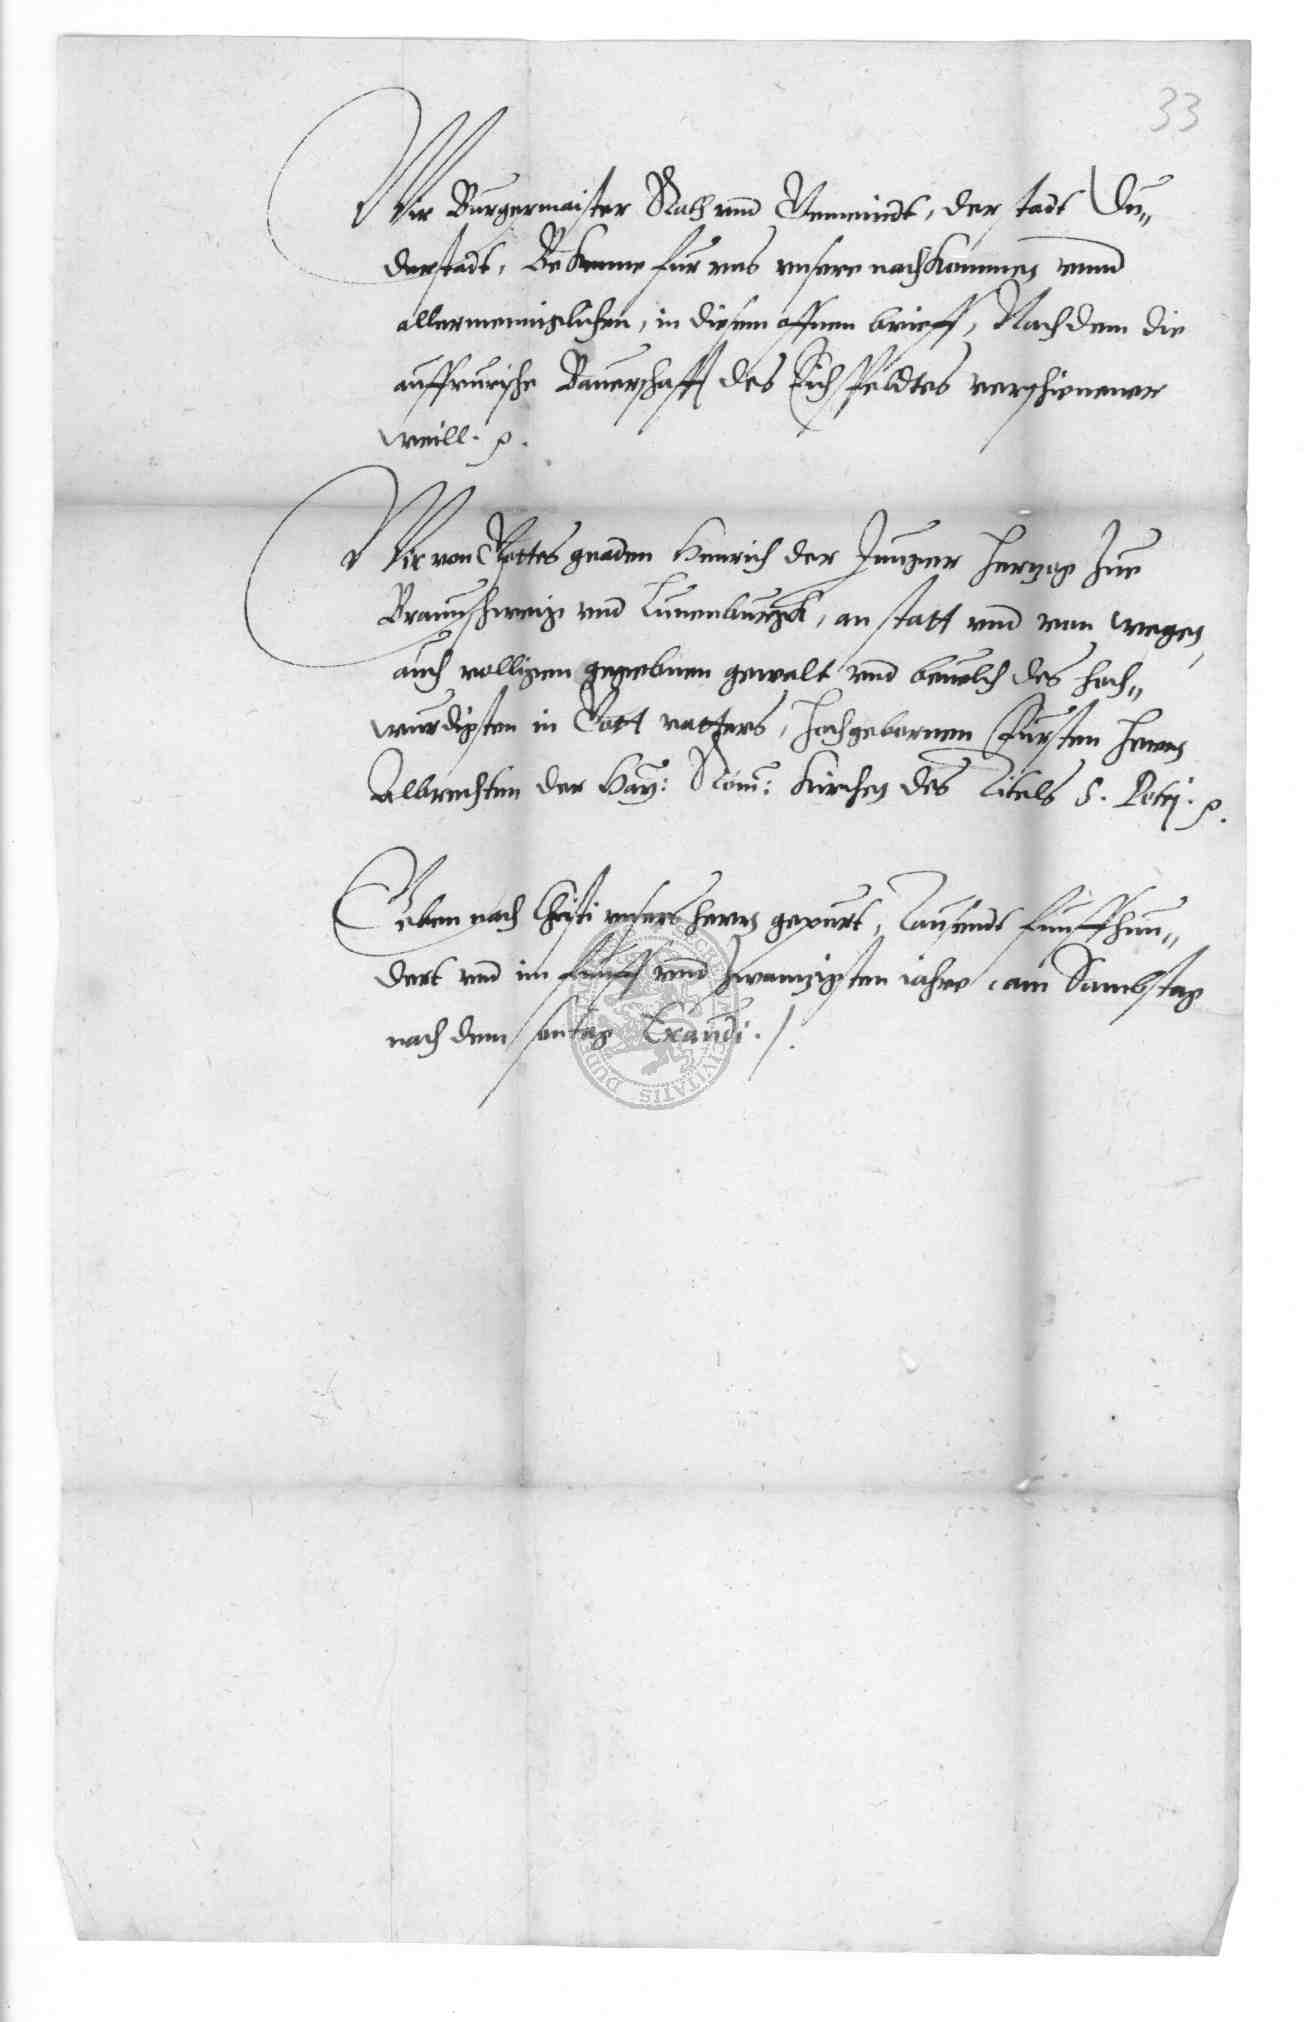 33
Wir Burgermaister Rath vnnd Gemeindt, der stadt Du„
derstadt, Bekenne fur vns vnsere nachkommen vnnd
allermenniglichen, in diesem offnen brieff, Nach dem die
auffrurische Bauerschafft des Eichsfeldes verschienener
weill. p.
Wir von Gottes gnaden Heinrich der Junger Hertzog zue
Braunschweig vnd Lunenburgk, an statt vnd von wegen,
auch volligem gegebnen gewalt vnd beuelch des hoch„
wurdigsten in Gott vatters, hochgebornen Fursten Herrn
Albrechten der Hay: Röm: Kirchen des Titels S. Petri. p.
Geben nach Christi vnsers herrn gepurt, Tausendt funffhun„
dert vnd im funff vnnd zwantzigsten iahre, am Sambstag
nach dem sontag Exaudi ./.
CIVITATIS DUDE